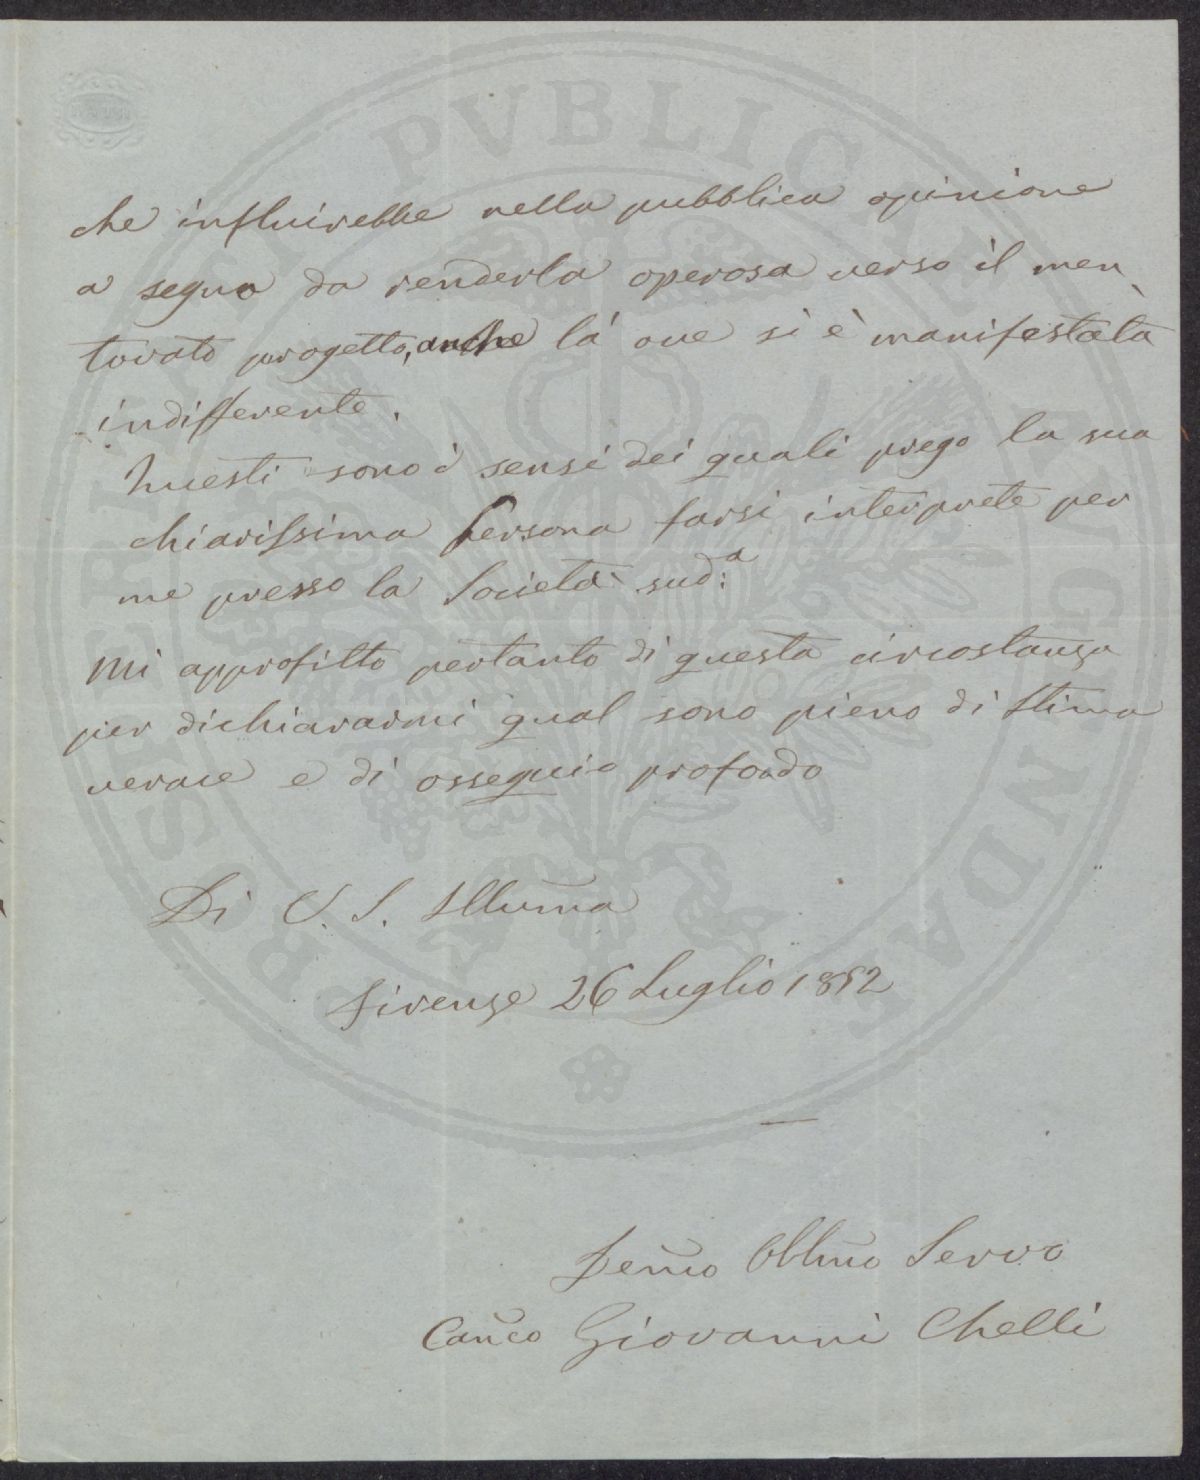 che influirebbe nella pubblica opinione
a segno da renderla operosa verso il men
tovato progetto, anche là ove si è manifestata
indifferente.
Questi sono i sensi dei quali prego la sua
chiarissima Persona farsi interprete per
me presso la Società sud.ª
Mi approfitto pertanto di questa circostanza
per dichiararmi qual sono pieno di stima
verace e di ossequio profondo
Di V. S. Illuma
Firenze 26 Luglio 1852
Demo Obblmo Servo
Canco Giovanni Chelli
PROSPERITATI PVBLICAE AVGENDAE